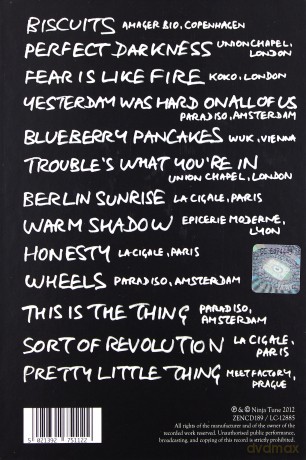 BISCUITS AMAGER BIO, COPENHAGEN
PERFECT DARKNESS UNION CHAPEL, LONDON
FEAR IS LIKE FIRE KOKO, LONDON
YESTERDAY WAS HARD ON ALL OF US
PARADISO, AMSTERDAM
BLUEBERRY PANCAKES WUK, VIENNA
TROUBLE'S WHAT YOU'RE IN
UNION CHAPEL, LONDON
BERLIN SUNRISE LA CIGALE, PARIS
WARM SHADOW EPICERIE MODERNE, LYON
HONESTY LA CIGALE, PARIS
WHEELS PARADISO, AMSTERDAM
THIS IS THE THING PARADISO, AMSTERDAM
SORT OF REVOLUTION LA CIGALE, PARIS
PRETTY LITTLE THING MEET FACTORY, PRAGUE
℗ & © Ninja Tune 2012
ZENCD189 / LC-12885
All rights of the manufacturer and of the owner of the
recorded work reserved. Unauthorised public performance,
broadcasting, and copying of this record is strictly prohibited.
dvdmax